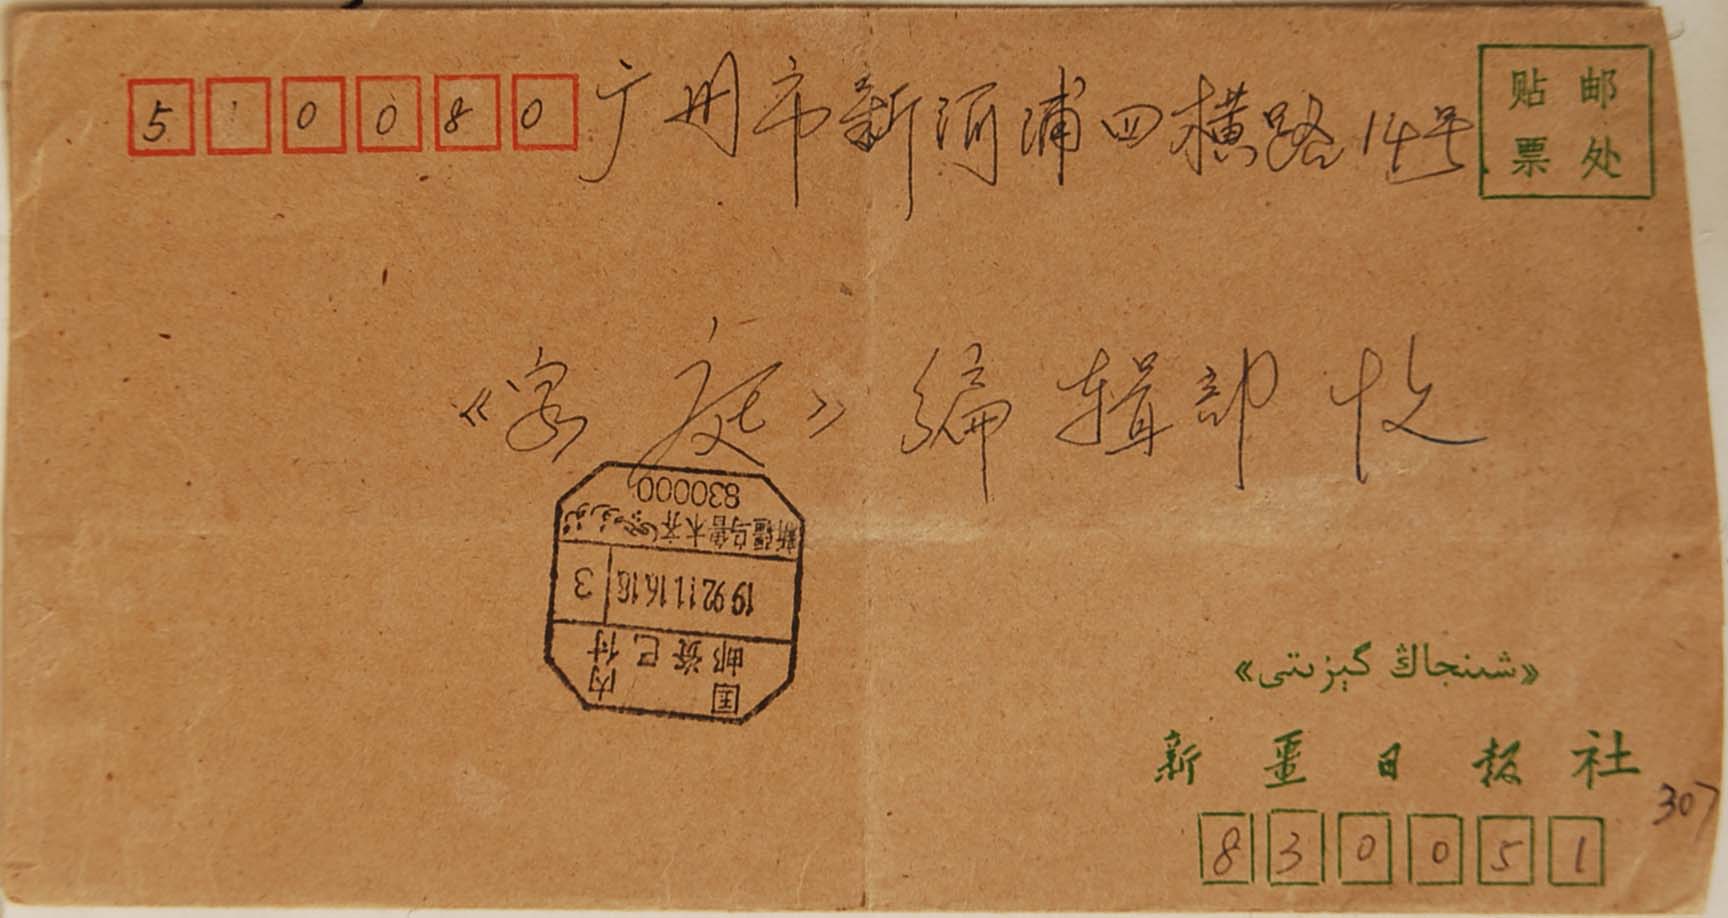 510080 广州市新河浦四横路14号
贴邮
票处
《家庭》编辑部收
830000
新疆乌鲁木齐
1992.11.16.18 3
邮资已付
国内
«شىنجاڭ گېزىتى»
新疆日报社
307
830051